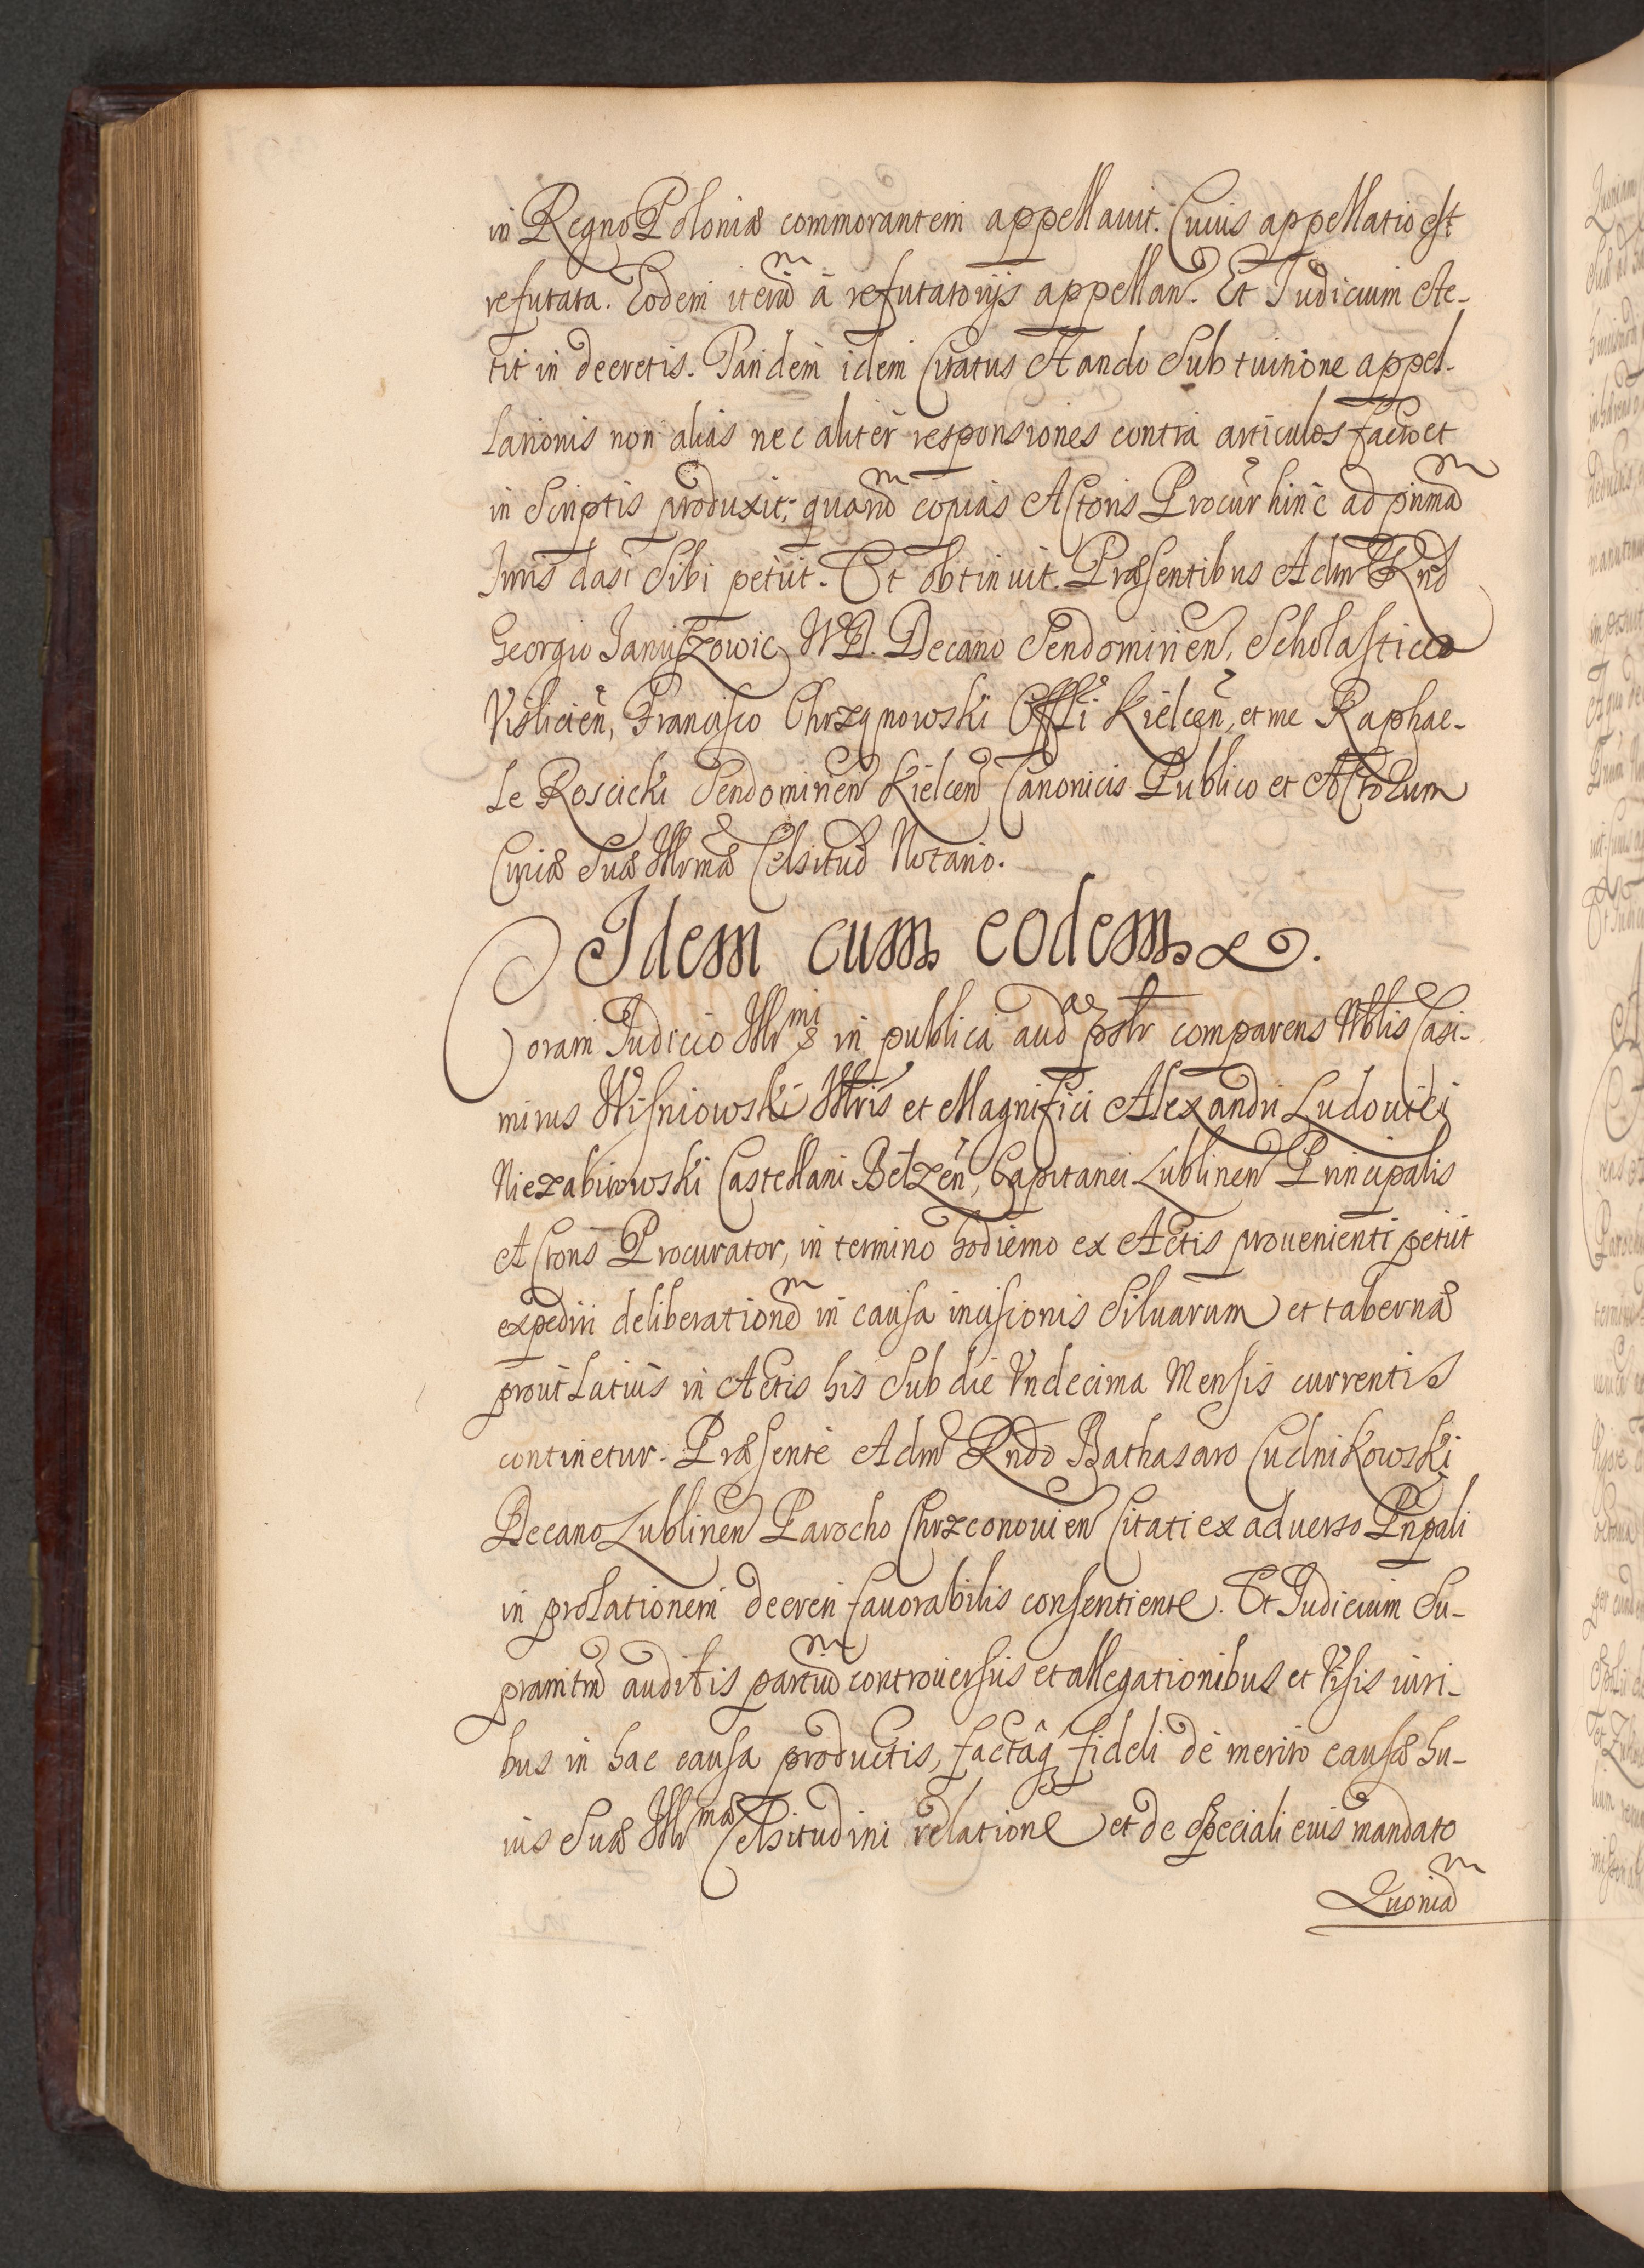 in Regno Poloniæ commorantem appellauit. Cuius appellatio est
refutata. Eodem iterũ à refutatorijs appellan. Et Iudicium ste-
tit in decretis. Tandem idem Citatus stando sub tuitione appel-
lationis non aliàs nec aliter responsiones contra articulos facto et
in scriptis produxit; quarũ copias Actoris Procur hinc ad primã
Iuris dari sibi petiit. Et obtinuit. Præsentibus Adm Rnd
Georgio Januszowic, Decano Sendomirien, Scholastico
Vislicien, Francisco Chrzanowski Offli Kielcen, et me Raphae-
le Roscicki Sendomirien Kielcen Canonicis Publico et Actorum
Curiæ Suæ Illrmæ Celsitud Notario.
Idem cum eodem &.
Coram Iudicio Illrmi & in publica audae pstr comparens Nblis Casi-
mirus Wisniowski Illris et Magnifici Alexandri Ludouici
Niezabitowski Castellani Betzen, Capitanei Lublinen Principalis
Actoris Procurator, in termino hodierno ex Actis prouenienti petiit
expediri deliberationẽ in causa incisionis Siluarum et tabernæ
prout latius in Actis his sub die Vndecima Mensis currentis
continetur. Præsente Adm Rndo Bathasaro Cudnikowski
Decano Lublinen Parocho Chrzconouien Citati ex aduerso Prpali
in prolationem decreti fauorabilis consentiente. Et Iudicium Su-
pramtm auditis partiũ controuersiis et allegationibus et Visis iuri-
bus in hac causa productis, factaq fideli de merito causæ hu-
ius Suæ Illrmæ Celsitudini relatione et de speciali eius mandato
Quoniã